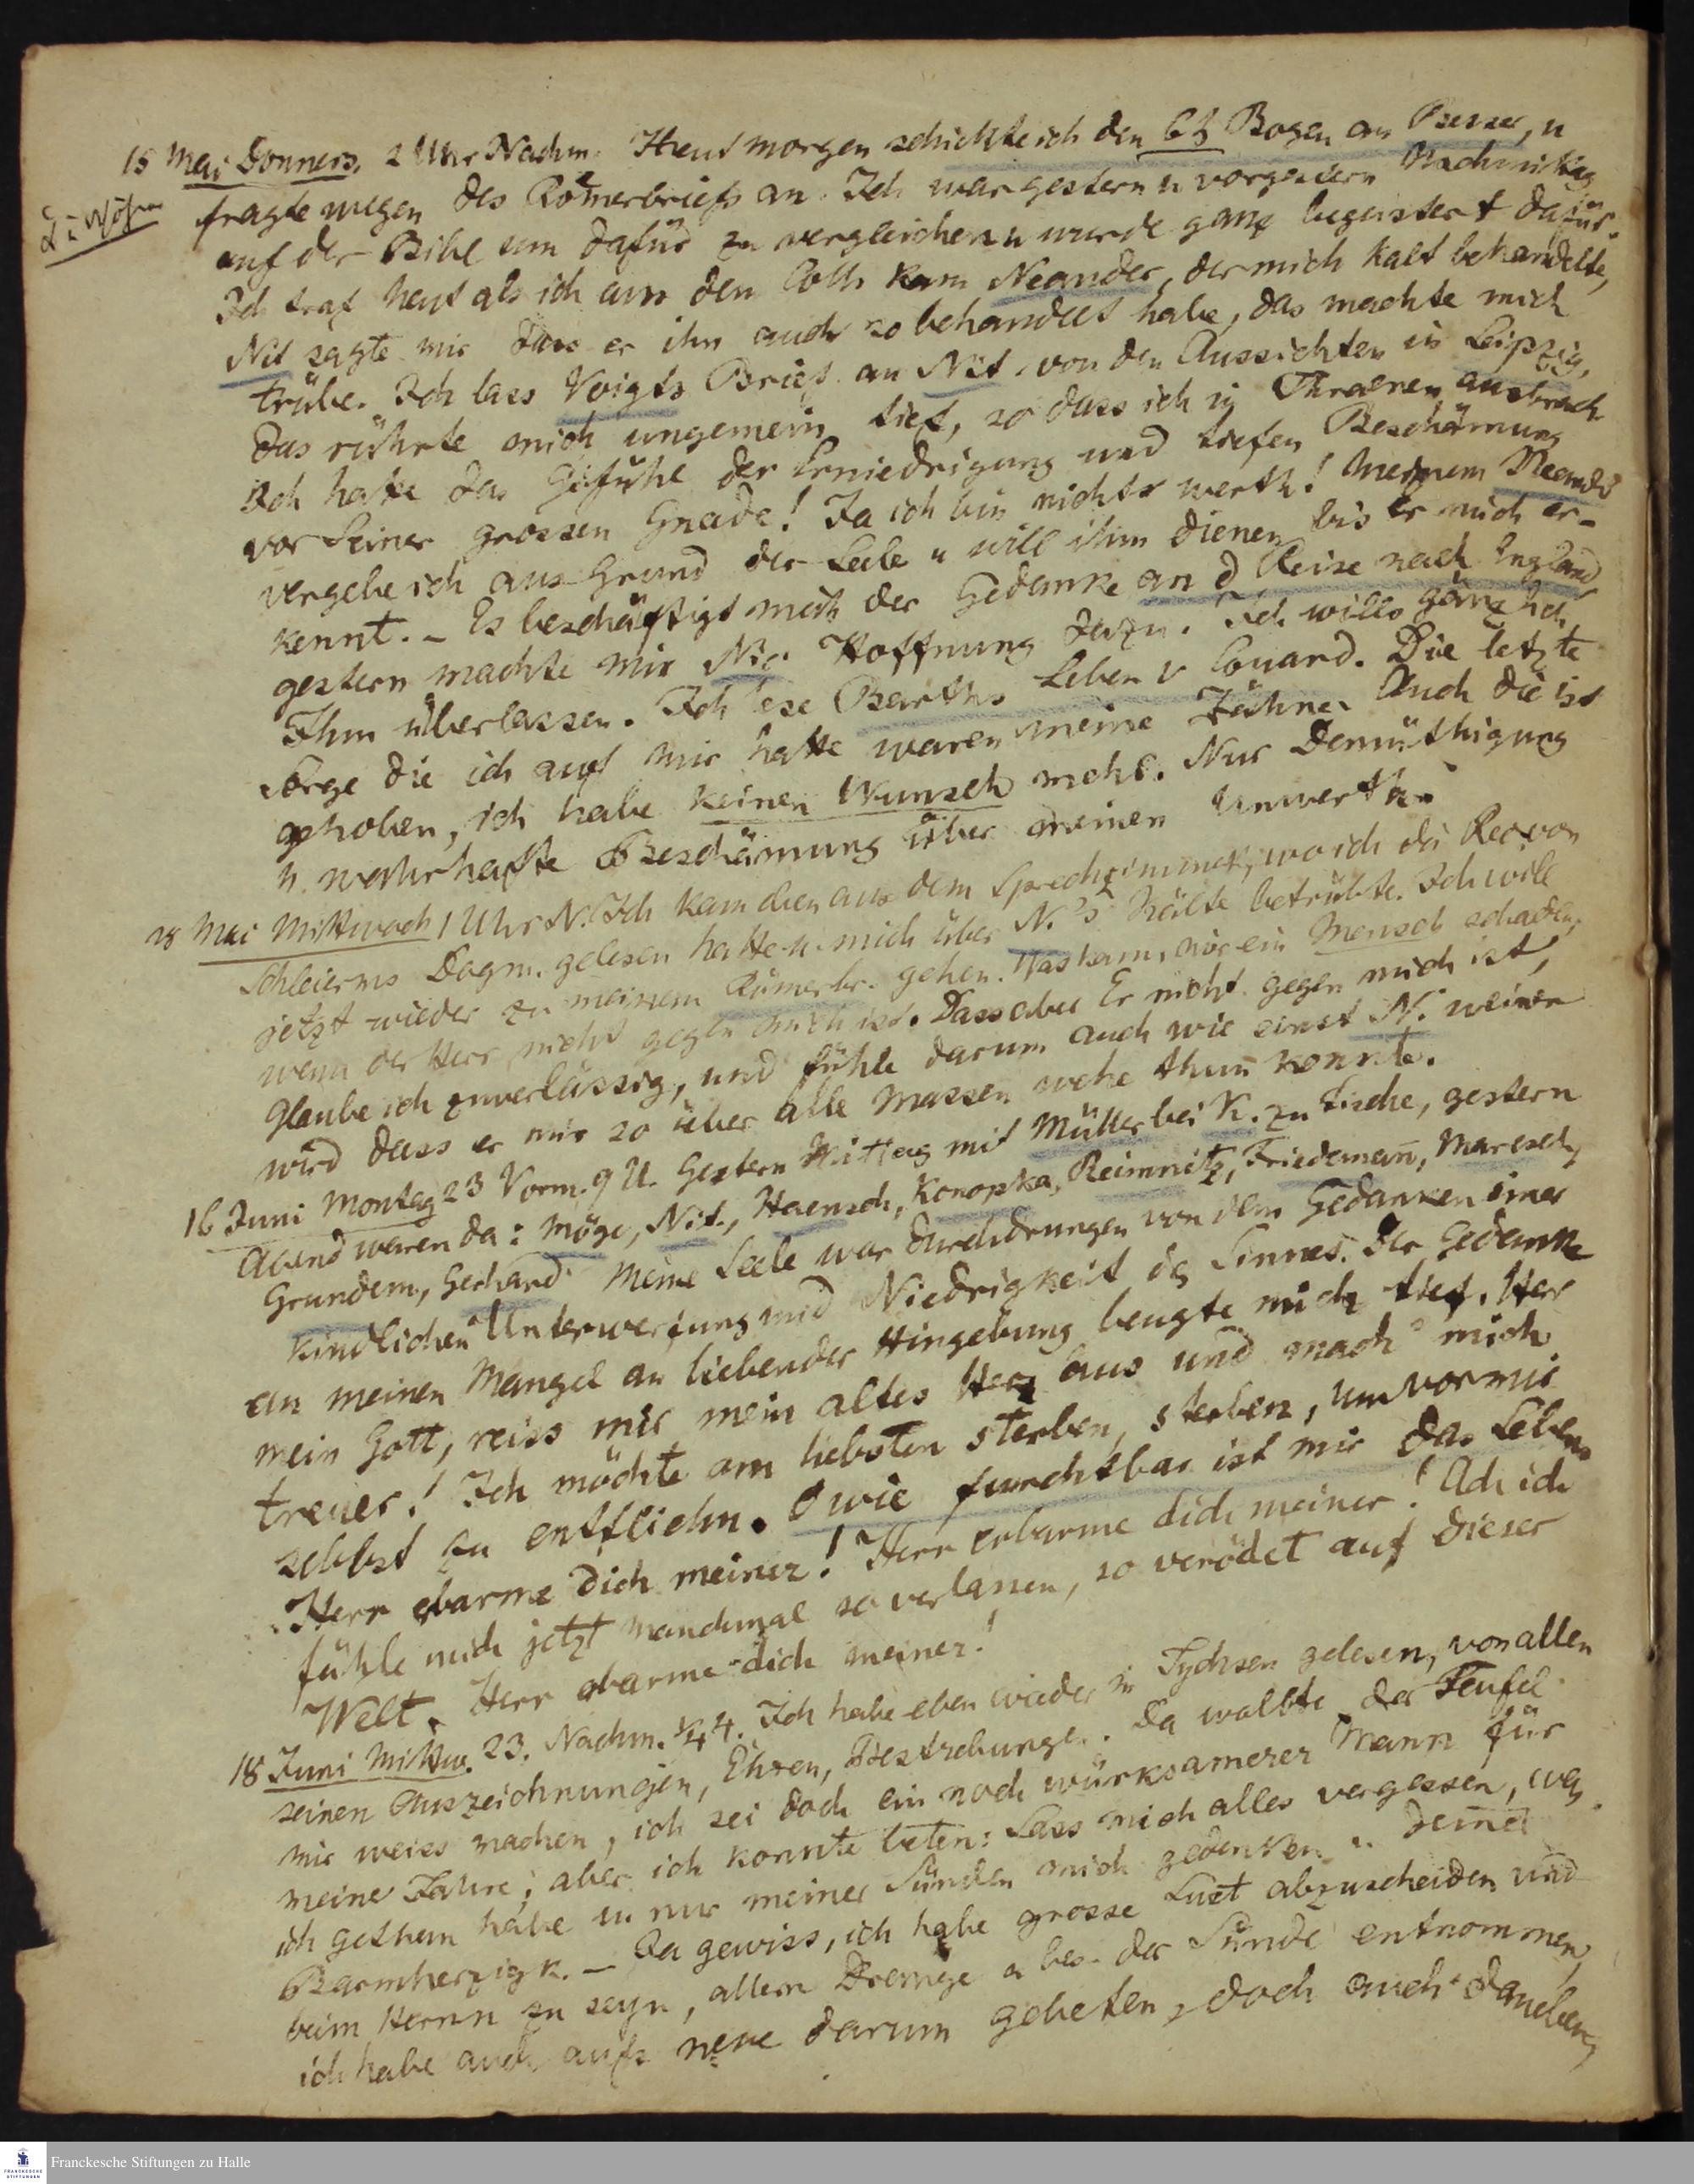 15 Mai Donners. 2 Uhr Nachm. Heut morgen schickte ich den 6t Bogen an Besser, u
fragte wegen des Römerbriefs an. Ich war gestern u vorgestern Nachmittag
auf der Bibl um dafür zu vergleichen u wurde ganz begeistert dafür.
Ich traf heut als ich aus den Coll kam Neander, der mich kalt behandelte,
Nit sagte mir dass er ihn auch so behandelt habe, das machte mich
trübe. Ich lass Voigts Brief an Nit von den Aussichten in Leipzig,
das rührte mich ungemein tief, so dass ich in Thraenen ausbrach
Ich hatte das Gefühl der Erniedrigung und tiefen Beschämung
vor Seiner grossen Gnade! Ja ich bin nichts werth! Meinem Neander
vergebe ich aus Grund der Seele u will ihm dienen bis er mich er-
kennt. – Es beschäftigt mich der Gedanke an d Reise nach England
gestern machte mir Nic. Hoffnung dazu. Ich wills gänzlich
Ihm überlassen. Ich lese Barths Leben v Couard. Die letzte
Sorge die ich auf mir hatte waren meine Zähne. Auch die ist
gehoben, ich habe keinen Wunsch mehr. Nur Demüthigung
u. wahrhafte Beschämung über meinen Unwerth.
28 Mai Mittwoch 1 Uhr N. Ich kam eben aus dem Sprechzimmer, wo ich die Rec von
Schleierms Dogm. gelesen hatte u. mich über N.'s Kälte betrübte. Ich will
jetzt wieder zu meinem Römerbr. gehen. Was kann mir ein Mensch schaden,
wenn der Herr nicht gegen mich ist. Dass aber Er nicht gegen mich ist,
glaube ich zuverlässig, und fühle darum auch wie einst N. weinen
wird dass er mir so über alle Massen wehe thun konnte.
16 Juni Montag 23 Vorm. 9 U. Gestern Mittag mit Müller bei K. zu Tische, gestern
Abend waren da: Möge, Nit., Haensch, Konopka, Reimnitz, Friedemañ, Maresch,
Grundem, Gerhard. Meine Seele war durchdrungen von dem Gedanken einer
kindlichen Unterwerfung und Niedrigkeit des Sinnes. Der Gedanke
an meinen Mangel an liebender Hingebung beugte mich tief. Herr
mein Gott, reiss mir mein altes Herz aus und mach' mich
treuer! Ich möchte am liebsten sterben, sterben, um vor mir
selbst zu entfliehn. O wie furchtbar ist mir das Leben
Herr erbarme dich meiner! Herr erbarme dich meiner! Ach ich
fühle mich jetzt manchmal so verlassen, so verödet auf dieser
Welt. Herr erbarme dich meiner!
18 Juni Mittw. 23. Nachm. ¼4. Ich habe eben wieder in Tychsen gelesen, von allen
seinen Auszeichnungen, Ehren, Bestrebungen. Da wollte der Teufel
mir weiss machen, ich sei doch ein noch würksamerer Mann für
meine Jahre; aber ich konnte beten: Lass mich alles vergessen, was
ich gethan habe u nur meiner Sünden mich gedenken u. deiner
Barmherzigk. – Ja gewiss, ich habe grosse Lust abzuscheiden und
beim Herrn zu seyn, allem Drange a bes. der Sünde entnommen,
ich habe auch aufs neue darum gebeten, doch auch daneben,
Franckesche Stiftungen zu Halle